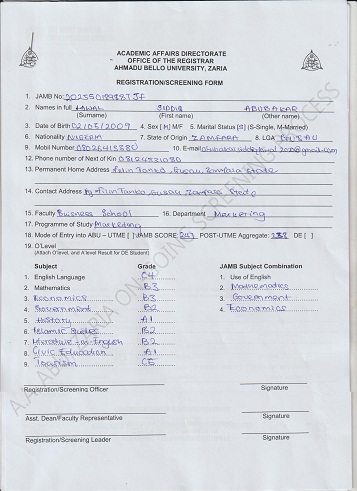 ACADEMIC AFFAIRS DIRECTORATE
OFFICE OF THE REGISTRAR
AHMADU BELLO UNIVERSITY, ZARIA
REGISTRATION/SCREENING FORM
1. JAMB No:
2. Names in full LAWAL SIDDIQ ABUBAKAR
(Surname) (First name) (Other name)
3. Date of Birth 02/05/2009 4. Sex [M] M/F 5. Marital Status [S] (S-Single, M-Married)
6. Nationality NIGERIA 7. State of Origin ZAMFARA 8. LGA GUSAU
9. Mobil Number 10. E-mail
12. Phone number of Next of Kin
13. Permanent Home Address Filin Tanko, Gusau, Zamfara State
14. Contact Address Filin Tanko, Gusau Zamfara State
15. Faculty Business School 16. Department Marketing
17. Programme of Study Marketing
18. Mode of Entry into ABU – UTME [ ] JAMB SCORE 247 POST-UTME Aggregate: DE [ ]
19. O'Level
(Attach O'level, and A'level Result for DE Student)
Subject Grade JAMB Subject Combination
1. English Language C4 1. Use of English
2. Mathematics B3 2. Mathematics
3. Economics B3 3. Government
4. Government B2 4. Economics
5. History A1
6. Islamic Studies B2
7. Literature-in-English B2
8. Civic Education A1
9. Tourism
Registration/Screening Officer Signature
Asst. Dean/Faculty Representative Signature
Registration/Screening Leader Signature